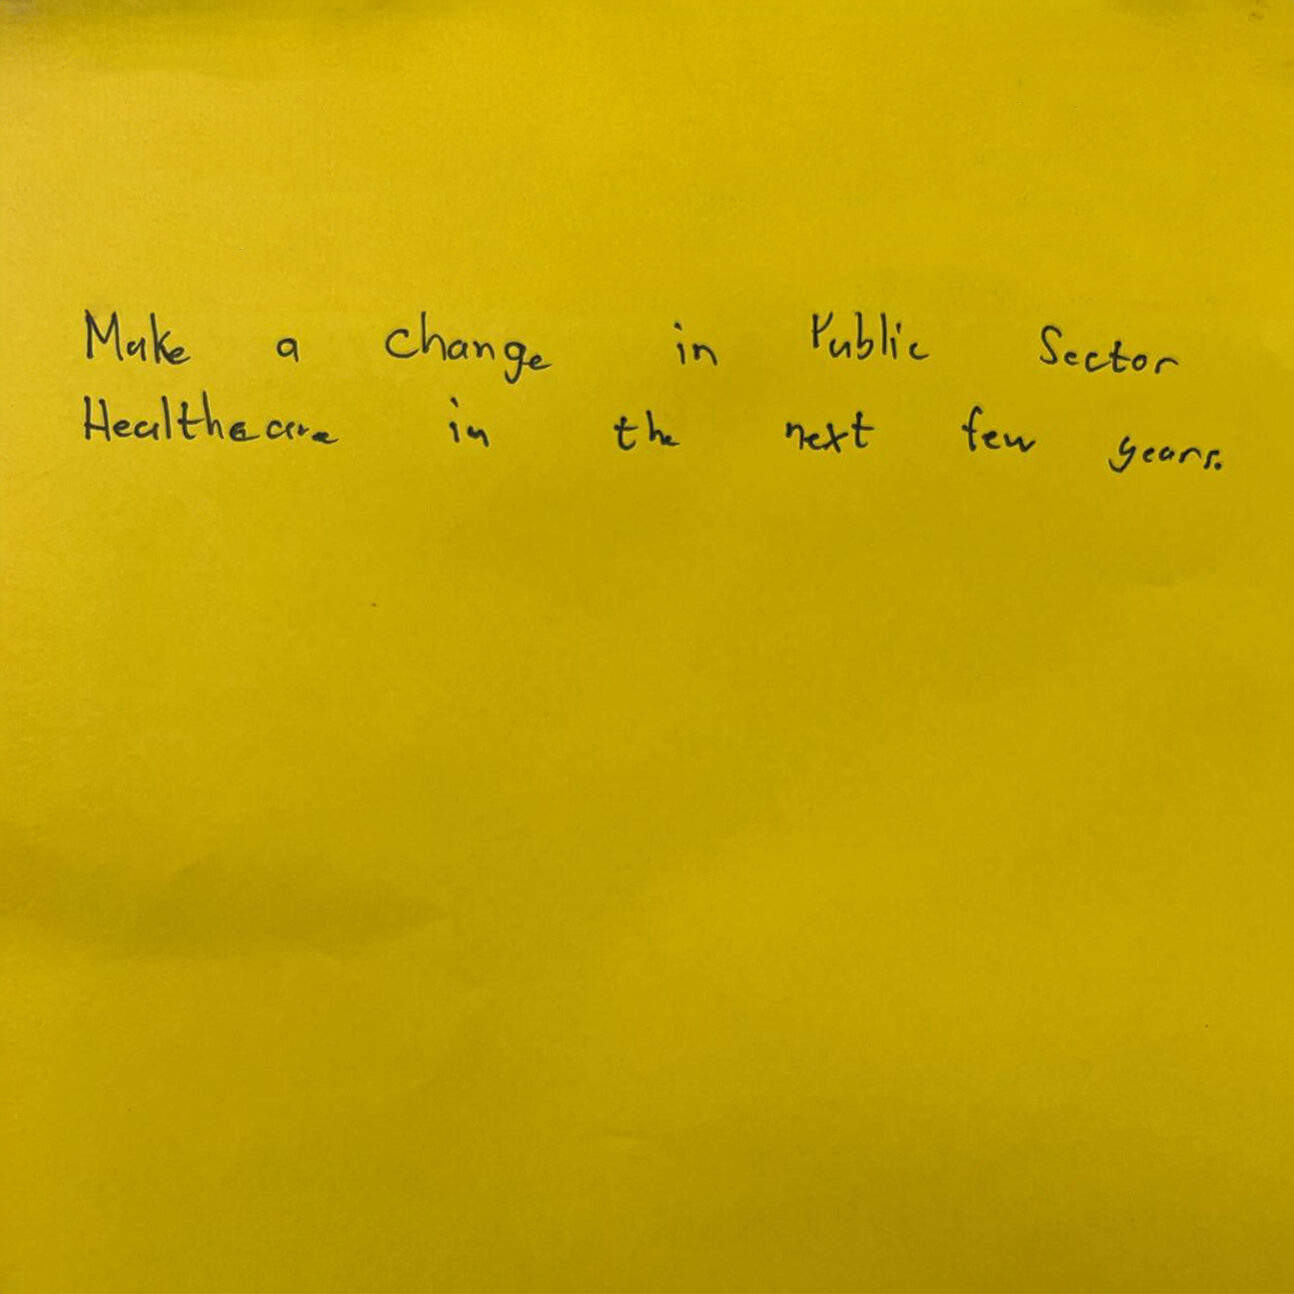 Make a change in Public Sector
Healthcare in the next few years.